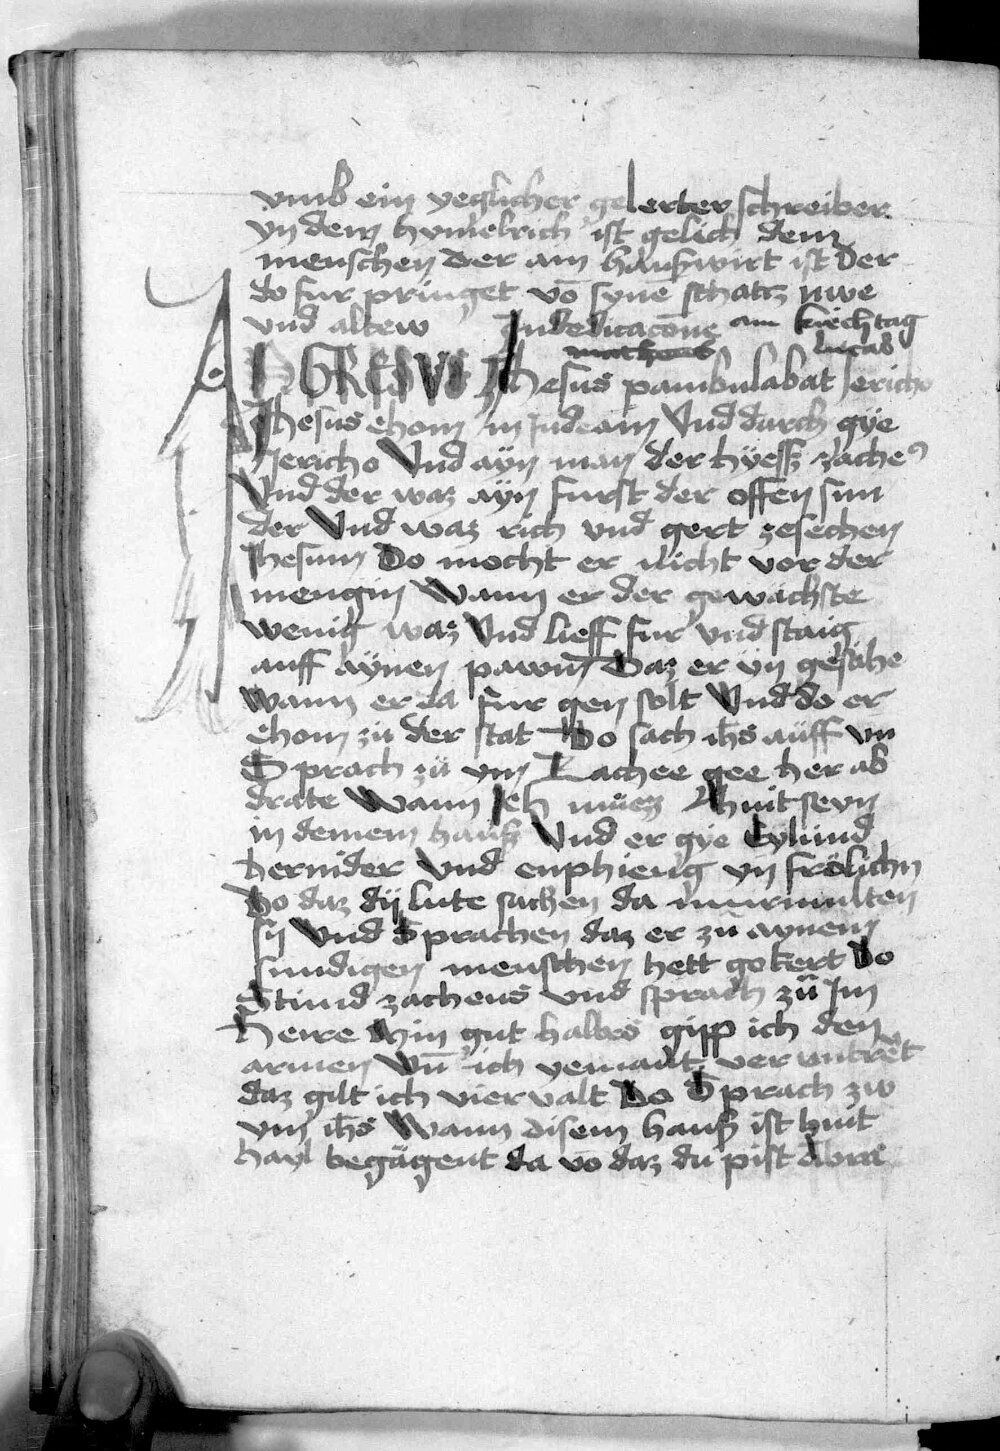 vmb ein yeglicher gelerter schreiber
yn dem hymelrich ist gelich dem
menschen der am haußwirt ist der
do fur pringet vō synē schatz nwe
vnd altew Indedicacōne am kirchtag
matheus lucas
Ihesus pambulabat Jericho
Ihesus chom in Judeam Vnd durch gÿe
Jericho Vnd aÿn man der hÿeß zache9
Vnd der waz aÿn furst der offen sun
der Vnd waz rich vnd gert zesechen
Jhesum Do mocht er nicht vor der
mengin Wann er der gewachste
wenig waz Vnd lieff fur vnd staig
auff aÿnen pawm Daz er ÿn gesähe
Wann er da fur gen solt Vnd do er
chom zü der stat Do sach ih̄s aüff vn
Sprach zü ym Zachee gee her ab
drate Wann Ich müez huit seyn
in deinem hauß Vnd er gÿe Eylund
hernider Vnd enphieng yn frölichn
Do daz dÿ lute sachen da murmulten
sÿ Vnd Sprachen daz er zü aynem
sundigen menschen hett gekert Do
Stund zacheus vnd sprach zü Im
Herre Min gut halbes gipp ich den
armen Vn̄ ich yemant ver untrët
daz gilt ich vier valt Do Sprach zw
ym ih̄s Wann disem hauß ist huit
hayl begägent da vō daz du pist Abra